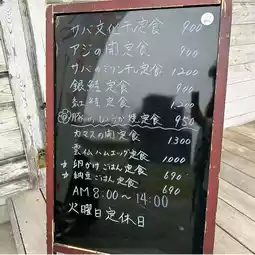 サバ文化干定食 900
アジの開定食 900
サバのミリン干し定食 1200
銀鮭定食 900
紅鮭定食 1200
豚のしょうが焼定食 950
カマスの開定食 1300
雲仙ハムエッグ定食 1000
★卵かけごはん定食 690
★納豆ごはん定食 690
AM8:00〜14:00
火曜日定休日